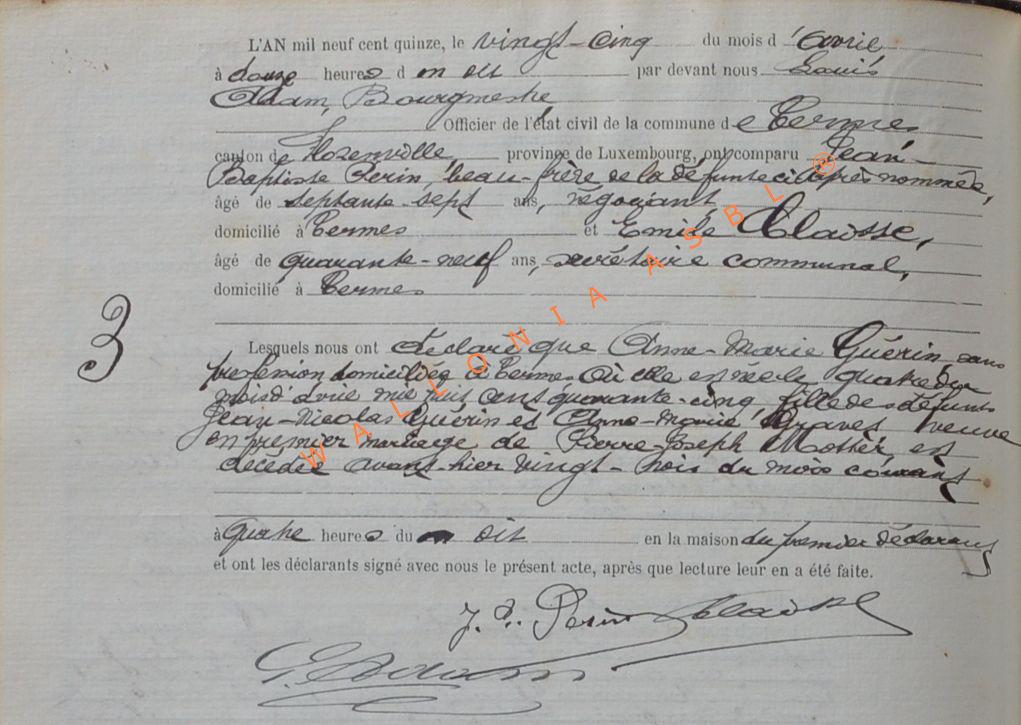 L'AN mil neuf cent quinze, le vingt-cinq du mois d'avril
à douze heures d m dit par devant nous Louis
Adam, Bourgmestre
Officier de l'état civil de la commune de Termes
canton de Florenville, province de Luxembourg, ont comparu Jean-
Baptiste Perin, beau-frère de la défunte ci-après nommée,
âgé de septante-sept ans, négociant
domicilié à Termes et Emile Claisse,
âgé de quarante-neuf ans, secrétaire communal,
domicilié à Termes
3
Lesquels nous ont déclaré que Anne-Marie Guérin, sans
profession domiciliée à Termes, où elle est née le quatre du
mois d'avril mil huit cent quarante-cinq, fille des défunts
Jean-Nicolas Guérin et Anne-Marie Graves, veuve
en premier mariage de Pierre-Joseph Mother, est
décédée avant-hier vingt-trois du mois courant
à quatre heures du m dit en la maison du premier déclarant
et ont les déclarants signé avec nous le présent acte, après que lecture leur en a été faite.
J. B. Perin Claisse
L. Adam
WALLONIA ASBL ®